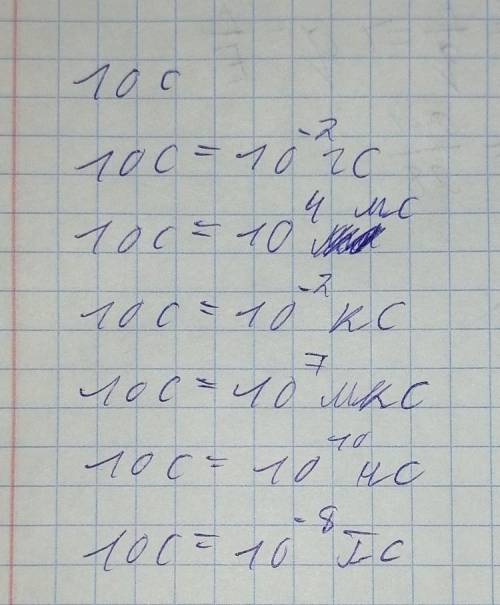 10 с
10с = 10⁻² гс
10с = 10⁴ мс
10с = 10⁻² кс
10с = 10⁷ мкс
10с = 10¹⁰ нс
10с = 10⁻⁸ Гс